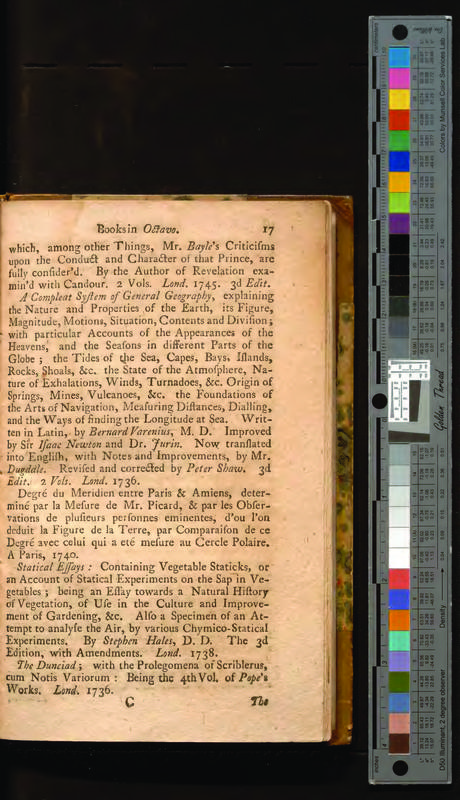 Books in Octavo. 17
which, among other Things, Mr. Bayle's Criticiſms
upon the Conduct and Character of that Prince, are
fully conſider'd. By the Author of Revelation exa-
min'd with Candour. 2 Vols. Lond. 1745. 3d Edit.
A Compleat Syſtem of General Geography, explaining
the Nature and Properties of the Earth, its Figure,
Magnitude, Motions, Situation, Contents and Diviſion;
with particular Accounts of the Appearances of the
Heavens, and the Seaſons in different Parts of the
Globe; the Tides of the Sea, Capes, Bays, Iſlands,
Rocks, Shoals, &c. the State of the Atmoſphere, Na-
ture of Exhalations, Winds, Turnadoes, &c. Origin of
Springs, Mines, Vulcanoes, &c. the Foundations of
the Arts of Navigation, Meaſuring Diſtances, Dialling,
and the Ways of finding the Longitude at Sea. Writ-
ten in Latin, by Bernard Varenius, M. D. Improved
by Sir Iſaac Newton and Dr. Jurin. Now tranſlated
into Engliſh, with Notes and Improvements, by Mr.
Dugdale. Reviſed and corrected by Peter Shaw. 3d
Edit. 2 Vols. Lond. 1736.
Degré du Meridien entre Paris & Amiens, deter-
miné par la Meſure de Mr. Picard, & par les Obſer-
vations de pluſieurs perſonnes eminentes, d'ou l'on
deduit la Figure de la Terre, par Comparaiſon de ce
Degré avec celui qui a eté meſure au Cercle Polaire.
A Paris, 1740.
Statical Eſſays: Containing Vegetable Staticks, or
an Account of Statical Experiments on the Sap in Ve-
getables; being an Eſſay towards a Natural Hiſtory
of Vegetation, of Uſe in the Culture and Improve-
ment of Gardening, &c. Alſo a Specimen of an At-
tempt to analyſe the Air, by various Chymico-Statical
Experiments. By Stephen Hales, D. D. The 3d
Edition, with Amendments. Lond. 1738.
The Dunciad; with the Prolegomena of Scriblerus,
cum Notis Variorum: Being the 4th Vol. of Pope's
Works. Lond. 1736.
C The
Colors by Munsell Color Services Lab
Golden Thread
Density
D50 Illuminant, 2 degree observer
inches